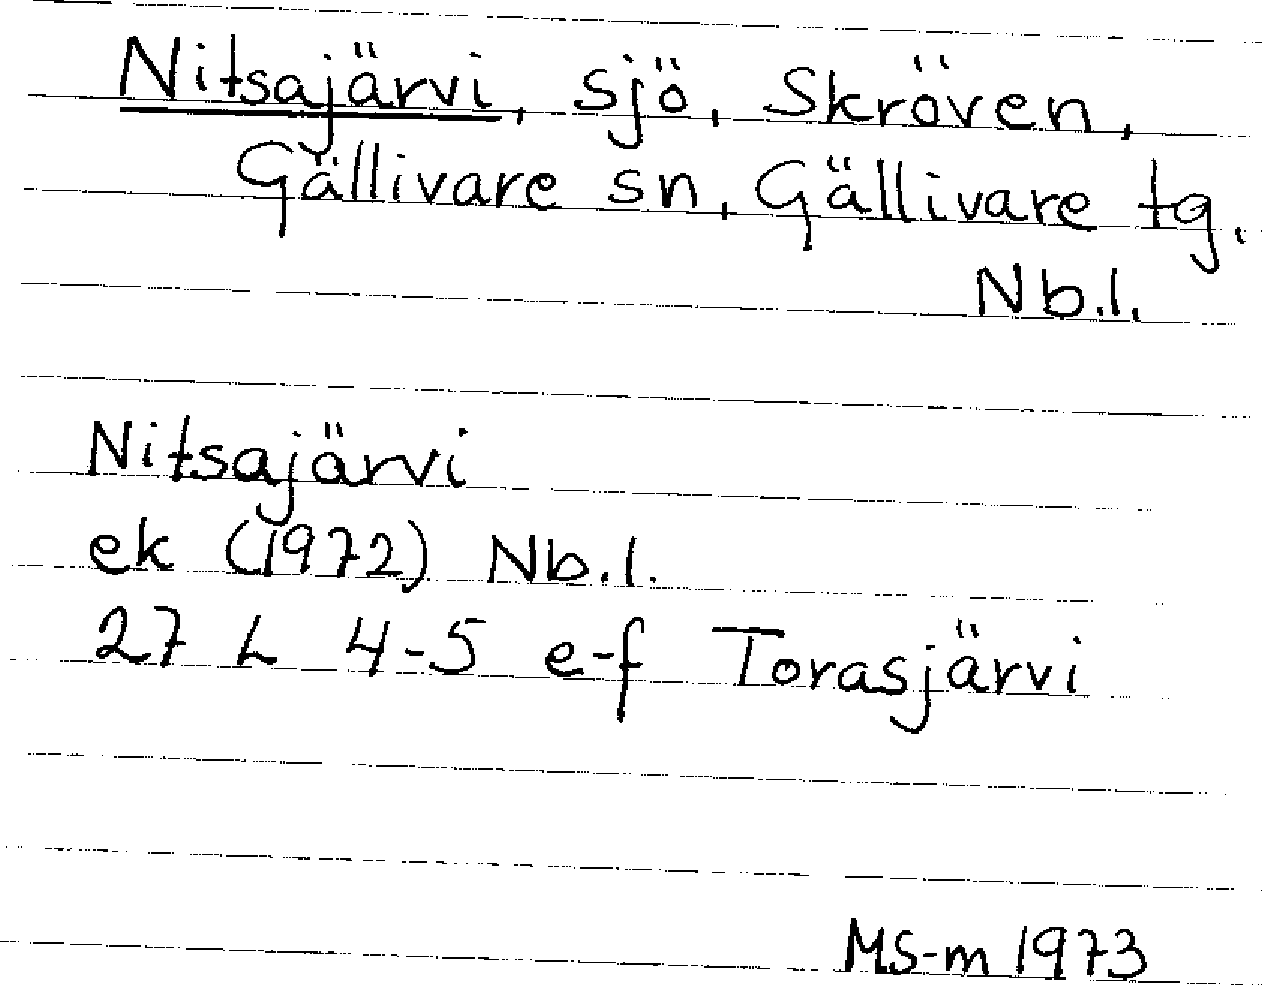 Nitsajärvi, sjö, Skröven,
Gällivare sn, Gällivare tg,
Nb.l.
Nitsajärvi
ek (1972) Nb.l.
27 L 4-5 e-f Torasjärvi
MS-m 1973